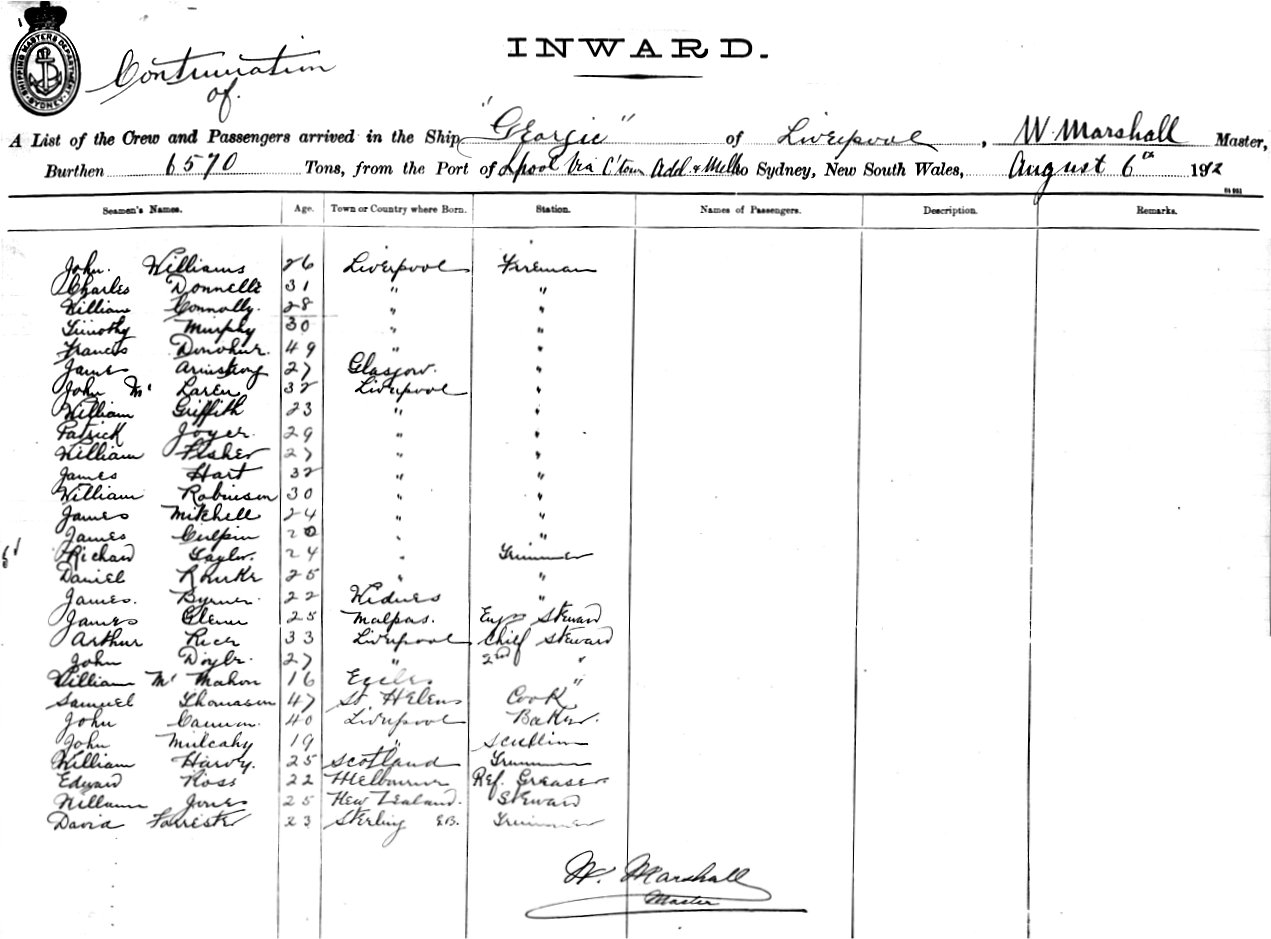 SHIPPING MASTERS DEPARTMENT SYDNEY
INWARD.
Continuation
of
A List of the Crew and Passengers arrived in the Ship "Georgic" of Liverpool, W. Marshall Master,
Burthen 6570 Tons, from the Port of Lpool Via C'town Add. & Melb to Sydney, New South Wales, August 6th 1912
Seamen's Names. Age. Town or Country where Born. Station. Names of Passengers. Description. Remarks.
John Williams 26 Liverpool Fireman
Charles Donnelly 31 " "
William Connolly. 28 " "
Timothy Murphy 30 " "
Francis Donohue. 49 " "
James Armstrong 27 Glasgow. "
John Mc Laren 32 Liverpool "
William Griffith 23 " "
Patrick Joyce. 29 " "
William Fisher 27 " "
James Hart 32 " "
William Robinson 30 " "
James Mitchell 24 " "
James Culpin 20 " "
Richard Taylor. 24 " Trimmer
Daniel Rourke 25 " "
James. Byrne. 22 Widnes "
James Glenn 25 Malpas. Engrs Steward
Arthur Rice 33 Liverpool Chief Steward
John Doyle. 27 " 2nd "
William Mc Mahon 16 "
Samuel Thomason 47 St. Helens Cook
John Cannon. 40 Liverpool Baker.
John Mulcahy 19 " Scullion
William Harvy. 25 Scotland Trimmer
Edward Ross 22 Melbourne Ref. Greaser
William Jones 25 New Zealand. Steward
David Forrester 23 Sterling Trimmer
W. Marshall
Master